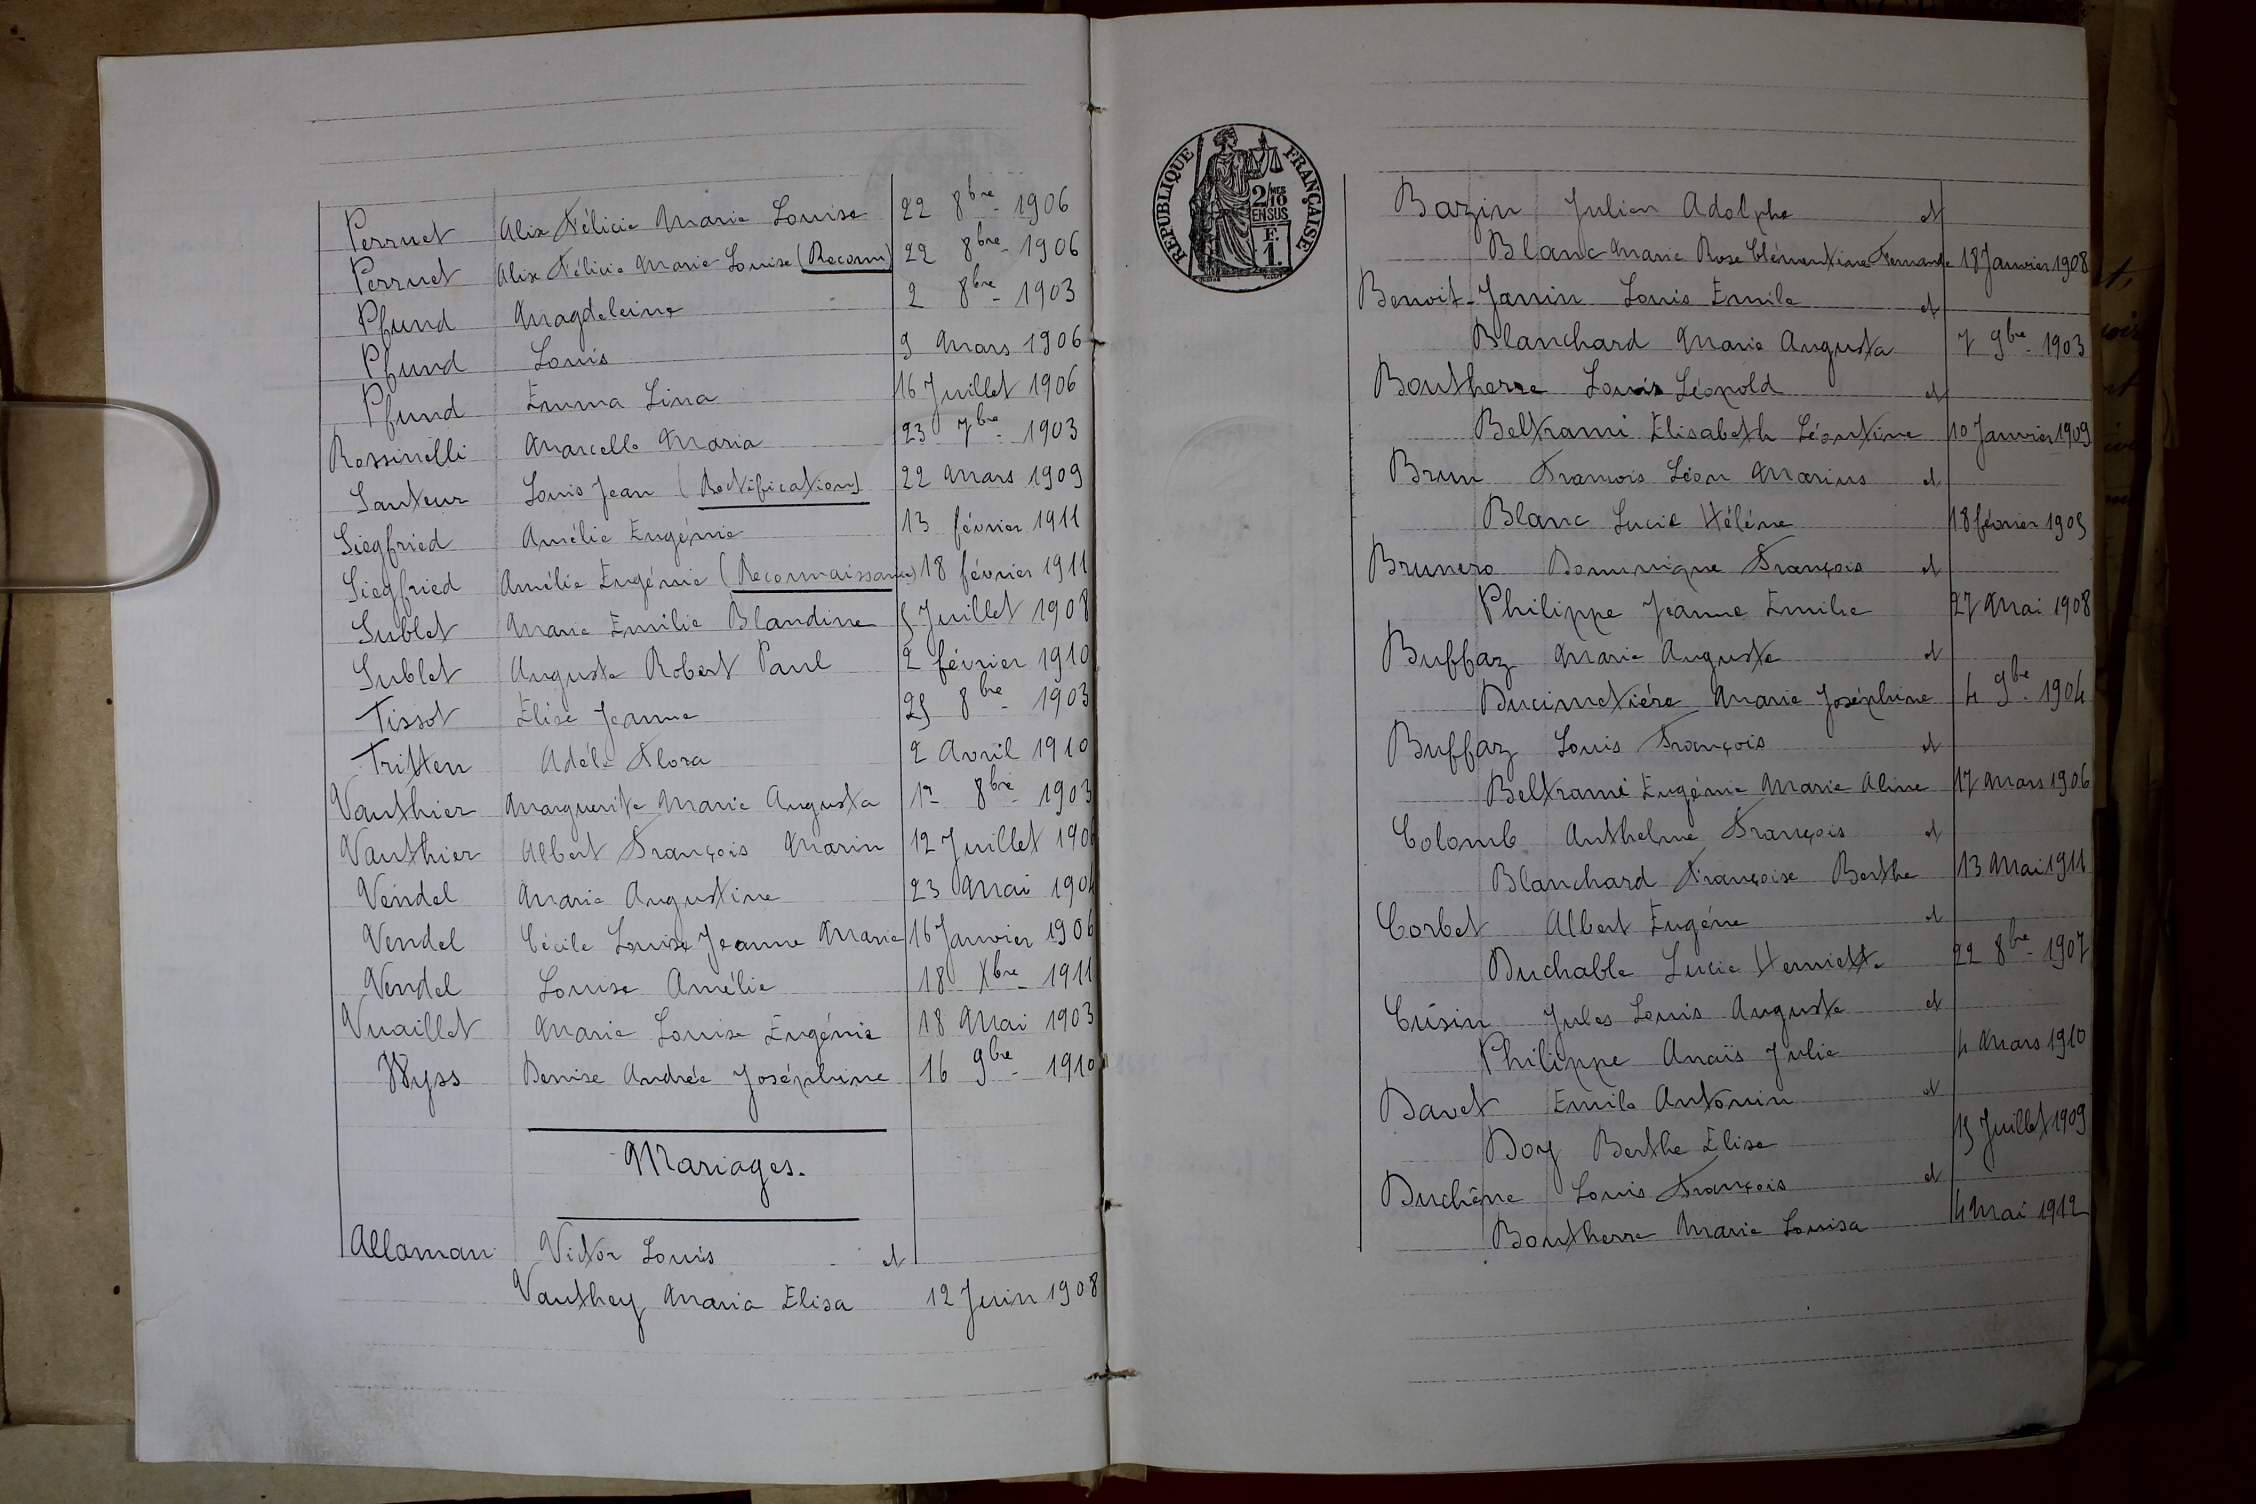 Perruet Alix Félicie Marie Louise 22 8bre 1906
Perruet Alix Félicie Marie Louise (Reconn) 22 8bre 1906
Pfund Magdeleine 2 8bre 1903
Pfund Louis 9 Mars 1906
Pfund Emma Lina 16 Juillet 1906
Rossinelli Marcelle Maria 23 7bre 1903
Sauteur Louis Jean (Rectification) 22 Mars 1909
Siegfried Amélie Eugénie 13 février 1911
Siegfried Amélie Eugénie (Reconnaissance) 18 février 1911
Sublet Marie Emilie Blandine 5 Juillet 1908
Sublet Auguste Robert Paul 2 février 1910
Tissot Elise Jeanne 25 8bre 1903
Tritten Adèle Flora 2 Avril 1910
Vauthier Marguerite Marie Augusta 12 8bre 1903
Vauthier Albert François Marin 12 Juillet 1906
Vendel Marie Augustine 23 Mai 1904
Vendel Cécile Louise Jeanne Marie 16 Janvier 1906
Vendel Louise Amélie 18 Xbre 1911
Vuaillet Marie Louise Eugénie 18 Mai 1903
Wyss Denise Andrée Joséphine 16 9bre 1910
Mariages.
Allaman Victor Louis et
Vauthey Maria Elisa 12 Juin 1908
REPUBLIQUE FRANÇAISE
2/10 MES
EN SUS
F.
1.
Bazin Julien Adolphe et
Blanc Marie Rose Clémentine Fernande 18 Janvier 1908
Benoit-Janin Louis Emile et
Blanchard Marie Augusta 7 9bre 1903
Boutherre Louis Léopold et
Beltrami Elisabeth Léontine 10 Janvier 1909
Brun François Léon Marius et
Blanc Lucie Hélène 18 février 1905
Brunero Dominique François et
Philippe Jeanne Emilie 27 Mai 1908
Buffaz Marie Auguste et
Ducimetière Marie Joséphine 4 9bre 1904
Buffaz Louis François et
Beltrami Eugénie Marie Aline 17 Mars 1906
Colomb Anthelme François et
Blanchard Françoise Berthe 13 Mai 1911
Corbet Albert Eugène et
Duchable Lucie Henriette 22 8bre 1907
Cusin Jules Louis Auguste et
Philippe Anaïs Julie 4 Mars 1910
Davet Emile Antonin et
Doy Berthe Elise 15 Juillet 1909
Duchêne Louis François et
Boutherre Marie Louisa 4 Mai 1912